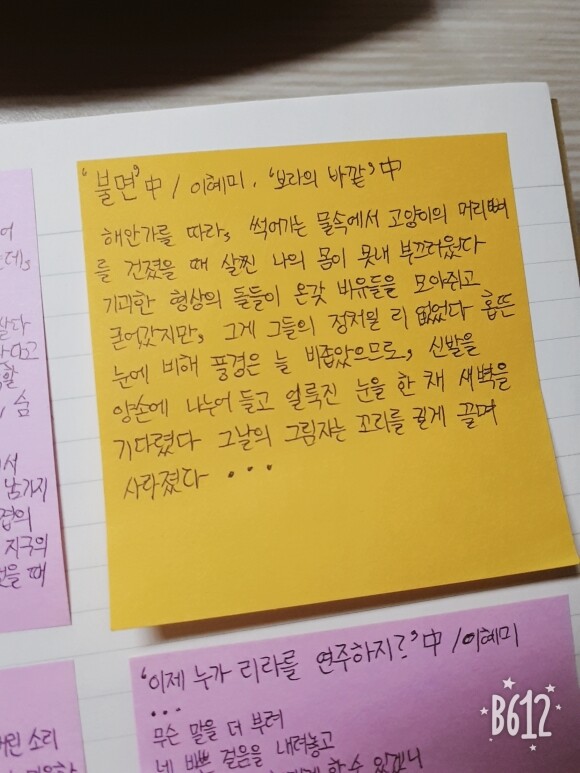 어
는데,
다고
할
, 숨
서
남기지
겁의
지구의
을 때
'불면' 中 / 이혜미, '보라의 바깥' 中
해안가를 따라, 썩어가는 물속에서 고양이의 머리뼈
를 건졌을 때 살찐 나의 몸이 못내 부끄러웠다
기괴한 형상의 돌들이 온갖 비유들을 모아쥐고
굳어갔지만, 그게 그들의 정처일 리 없었다 홉뜬
눈에 비해 풍경은 늘 비좁았으므로, 신발을
양손에 나누어 들고 얼룩진 눈을 한 채 새벽을
기다렸다 그날의 그림자는 꼬리를 길게 끌며
사라졌다 ...
버린 소리
'이제 누가 리라를 연주하지?' 中 / 이혜미
...
무슨 말을 더 부려
네 바쁜 걸음을 내려놓고
할 수 있겠니
B612